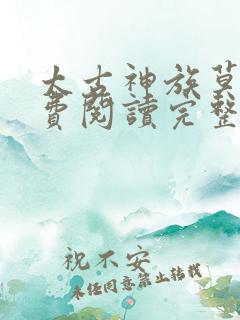 太古神族莫
費閱讀完整
祝不安
未經同意禁止轉載